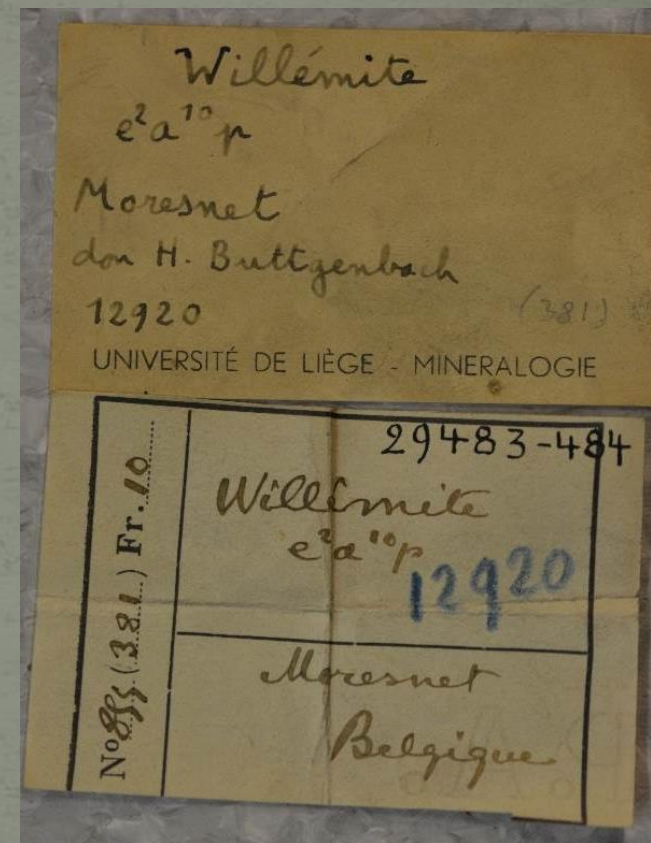 Willémite
e²a¹⁰p
Moresnet
don H. Buttgenbach
12920
(381)
UNIVERSITÉ DE LIÈGE - MINERALOGIE
29483-484
Nº (381) Fr. 10
Willémite
e²a¹⁰p
12920
Moresnet
Belgique